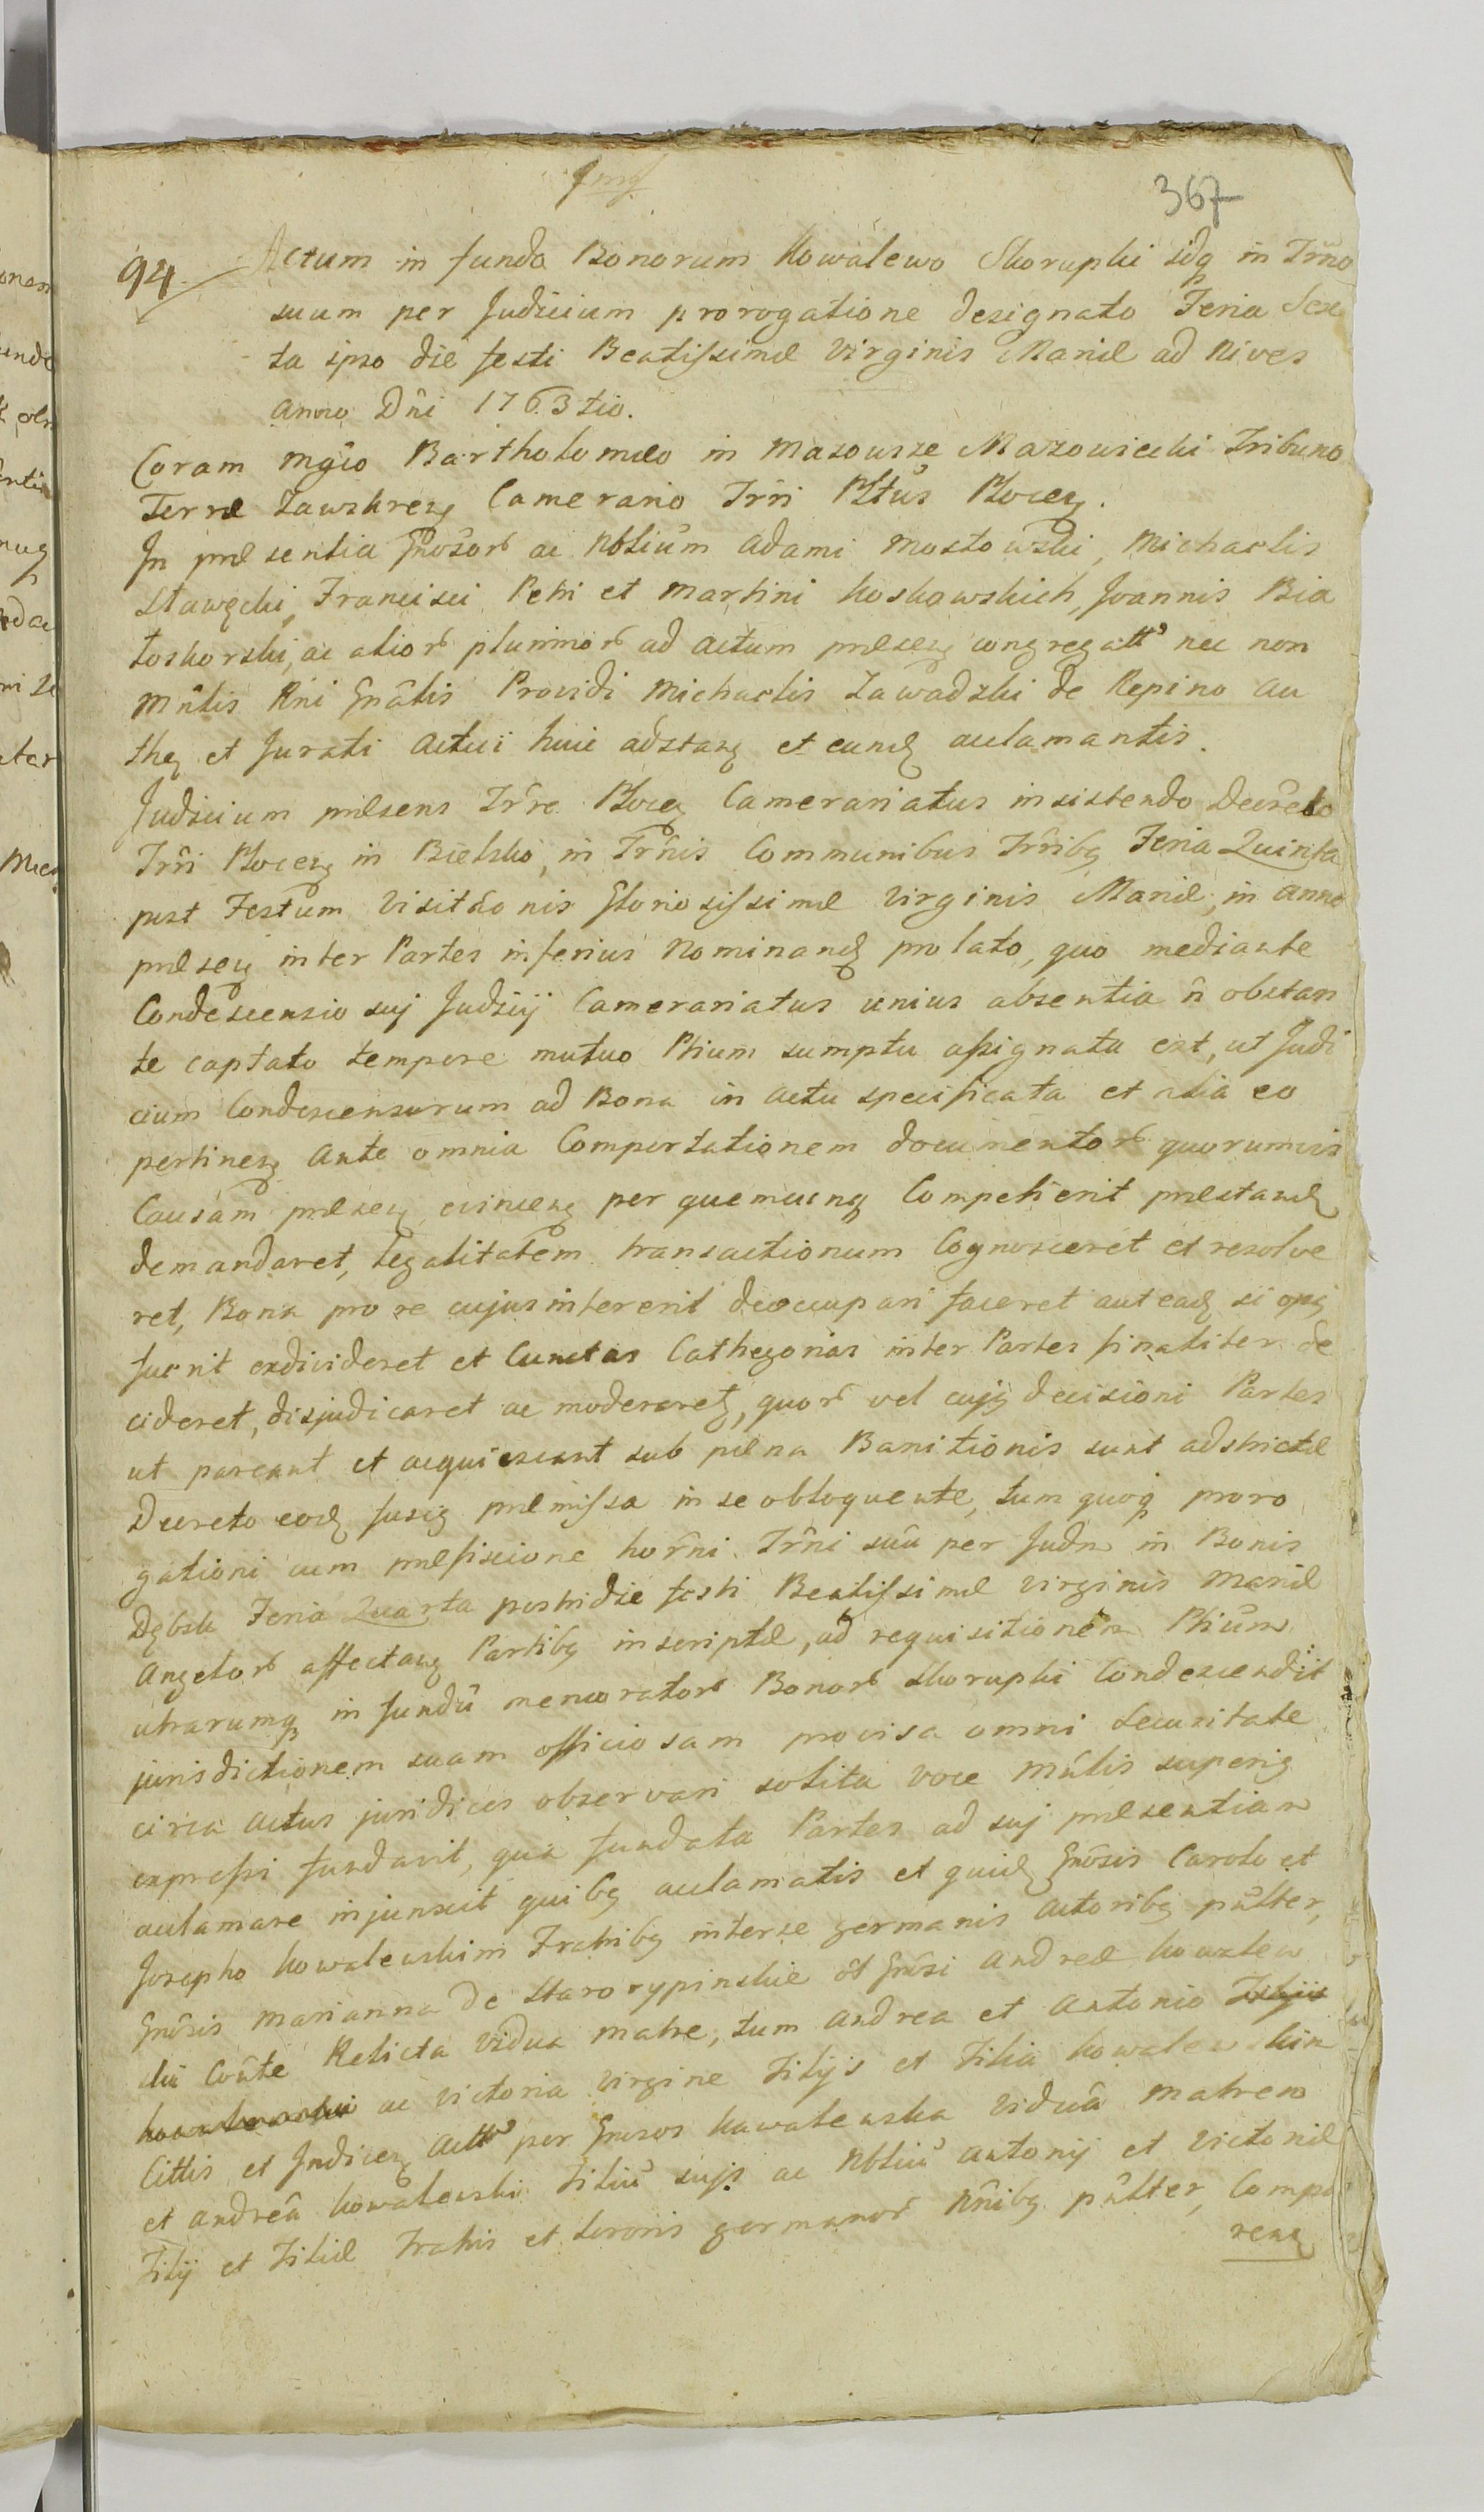 367
94. Actum in fundo Bonorum Kowalewo Skorupki idq in Trno
suum per Judicium prorogatione designato Feria Sex
ta ipso die festi Beatissimæ Virginis Mariæ ad Nives
Anno Dni 1763tio.
Coram Mgco Bartholomæo in Mazowsze Mazowiecki Tribuno
Terræ Zawskreṅ Camerario Trri Pltus Plocen.
In præsentia Gnosor ac Nblium Adami Mostowski, Michaelis
Sławęcki, Francisci Petri et Martini Koskowskich, Joannis Bia
łoskorski, ac alior plurimor ad Actum præsen congregatt nec non
Mnlis Rni Gnalis Providi Michaelis Zawadzki de Repino au
then et Jurati Actui huic adstan et eund acclamantis.
Judicium præsens Trre Plocen Camerariatus insistendo Decreto
Trri Plocen in Bielsko, in Trnis Communibus Trribq Feria Quinta
post Festum Visitaonis Gloriosissimæ Virginis Mariæ, in anno
præsen inter Partes inferius Nominand prolato, quo mediante
Condescensio suj Judicij Camerariatus unius absentia n obstan
te captato tempore mutuo Ptium sumptu assignata est, ut Judi
cium Condescensurum ad Bona in actu specificata et alia eo
pertinen ante omnia Comportationem documentor quorumvis
Causam præsen evincen per quemcunq Competierit præstand
demandaret, legalitatem transactionum Cognosceret et resolve
ret, Bona pro re cujus intererit deoccupari faceret aut ead si opq
fuerit exdivideret et Cunctas Cathegorias inter Partes finaliter de
cideret, disjudicaret ac moderaret, quor vel cujq decisioni Partes
ut pareant et acquiescant sub pæna Banitionis sunt adstrictæ
Decreto eod fusiq præmissa in se obloquente, tum quoq proro
gationi cum præfixione horni Trni suu per Judm in Bonis
Dębsk Feria Quarta postridie festi Beatissimæ Virginis Mariæ
Angelor affectan Partibq inscriptæ, ad requisitionem Ptium
utrarumq in fundu memorator Bonor Skorupki Condescendit
jurisdictionem suam officiosam provisa omni securitate
circa Actus juridicos observari solita voce Mnlis superiq
expressi fundavit, qua fundata Partes ad suj præsentiam
acclamare injunxit quibq acclamatis et quid Gnosis Carolo et
Josepho Kowalewskim Fratribq inter se germanis Actoribq pnlter,
Gnosis Marianna de Starorypinskie olt Gnosi Andreæ Kowalew
ski Conte Relicta Vidua Matre, tum Andrea et Antonio Filijs
Kowalewskie ac Victoria Virgine Filijs et Filia Kowalewskim
Cittis et Indicen Actt per Gnosos Kowalewska Vidua Matrem
et Andrea Kowalewski Filiu sujs ac Nbliu Antonij et Victoriæ
Filij et Filiæ Fratris et Sororis germanor Nnibq pnlter, Compa
ren